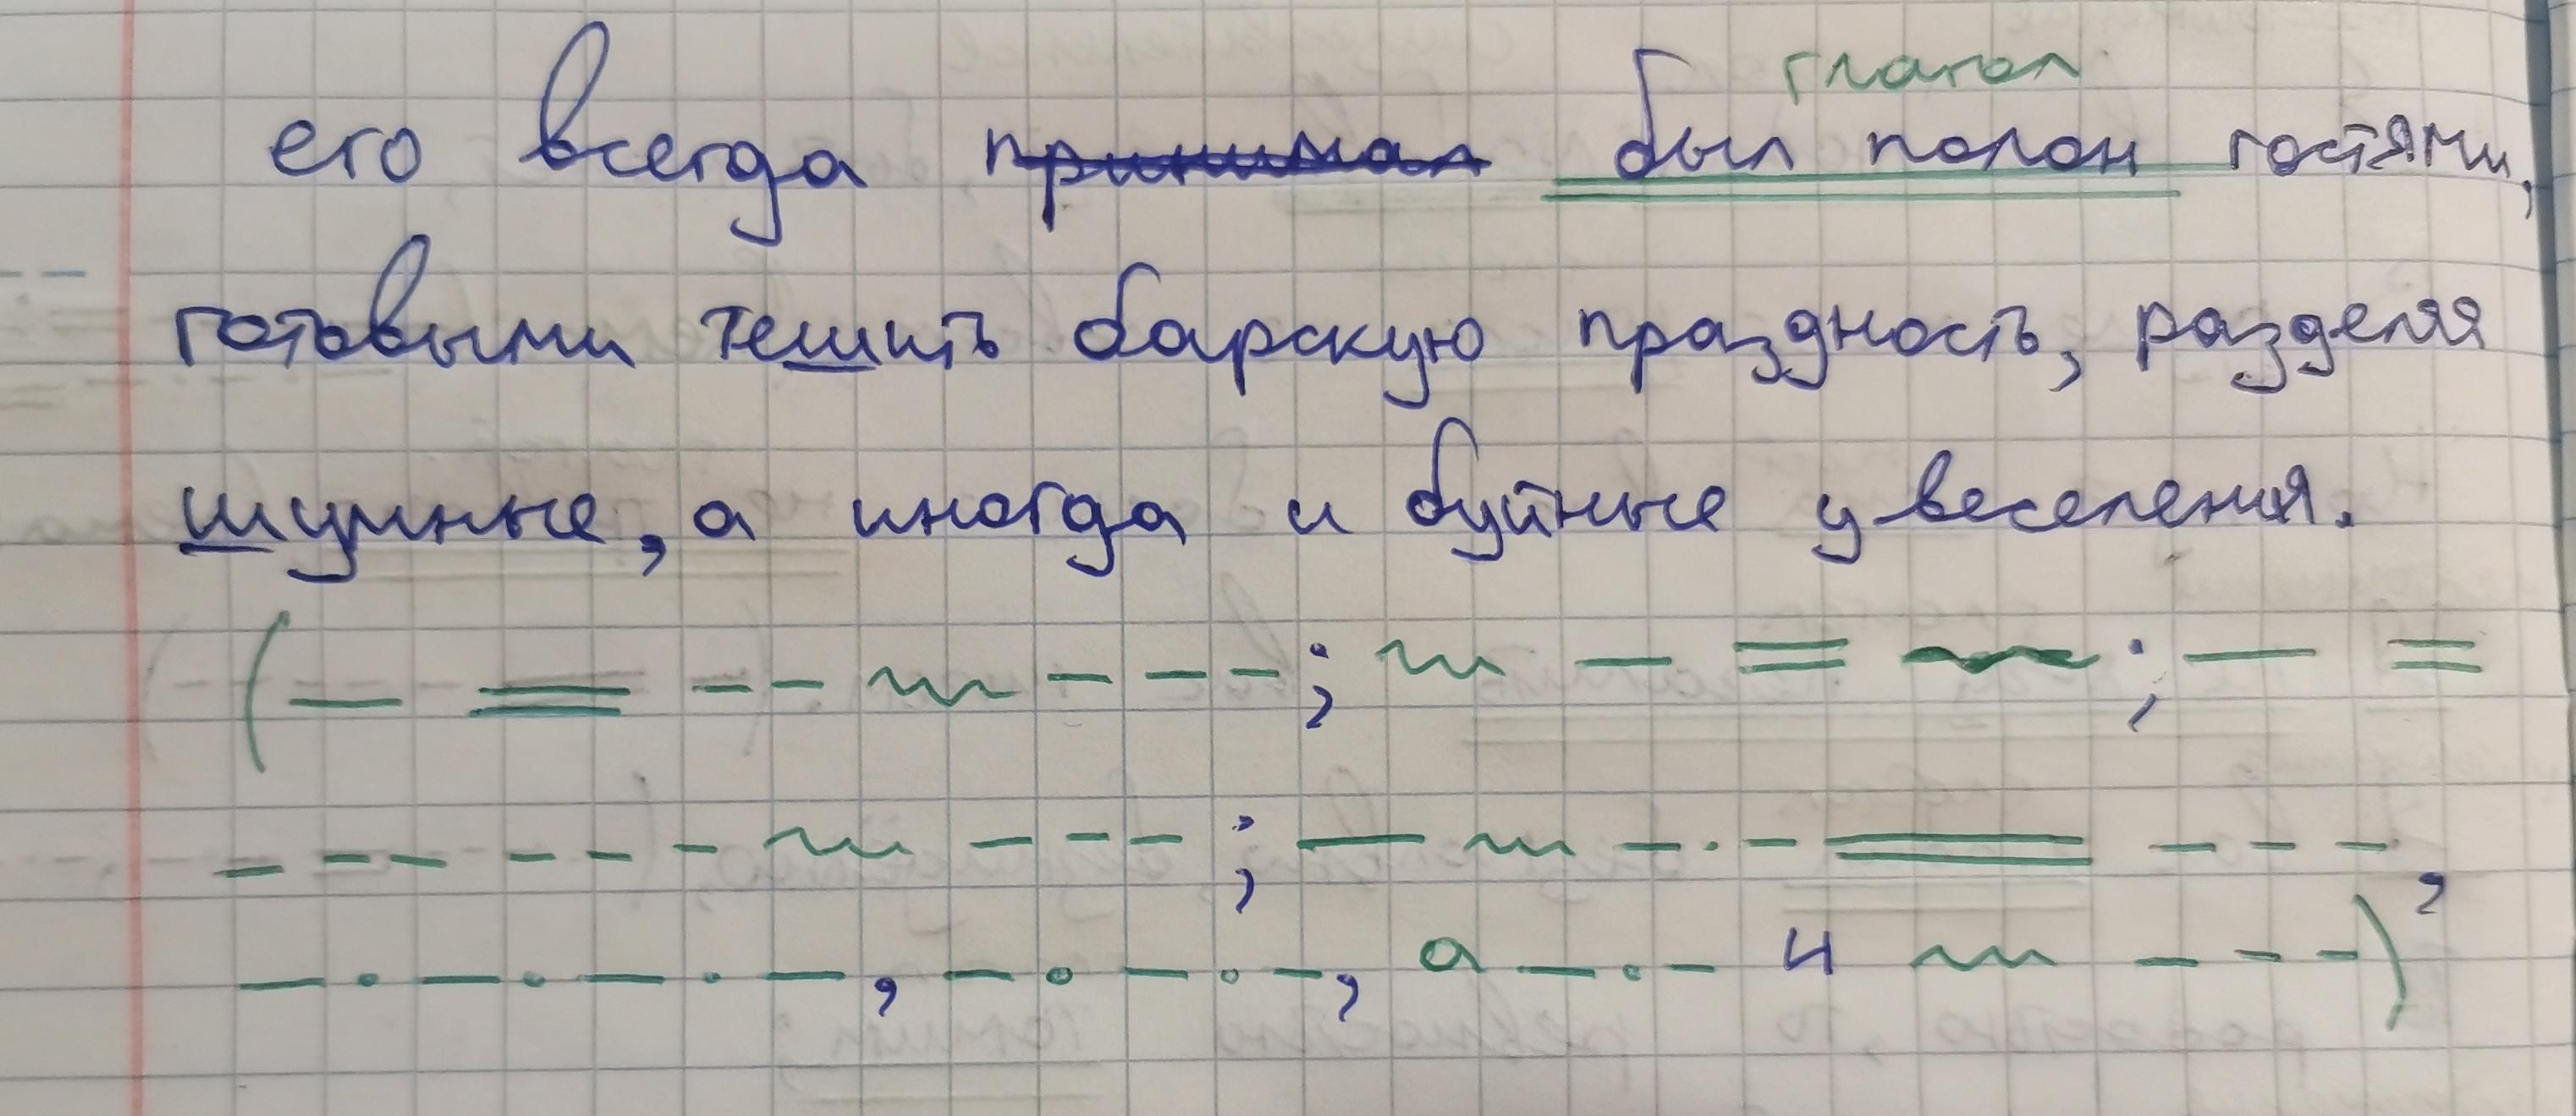 глагол
его всегда принимал был полон гостями,
готовыми тешить барскую праздность, разделяя
шумные, а иногда и буйные увеселения.
( ; ;
; ,
, , а и )